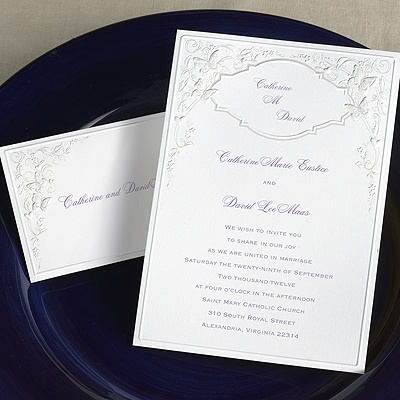 Catherine
M
David
Catherine Marie Eustice
AND
David Lee Maas
WE WISH TO INVITE YOU
TO SHARE IN OUR JOY
AS WE ARE UNITED IN MARRIAGE
SATURDAY THE TWENTY-NINTH OF SEPTEMBER
TWO THOUSAND TWELVE
AT FOUR O'CLOCK IN THE AFTERNOON
SAINT MARY CATHOLIC CHURCH
310 SOUTH ROYAL STREET
ALEXANDRIA, VIRGINIA 22314
Catherine and David